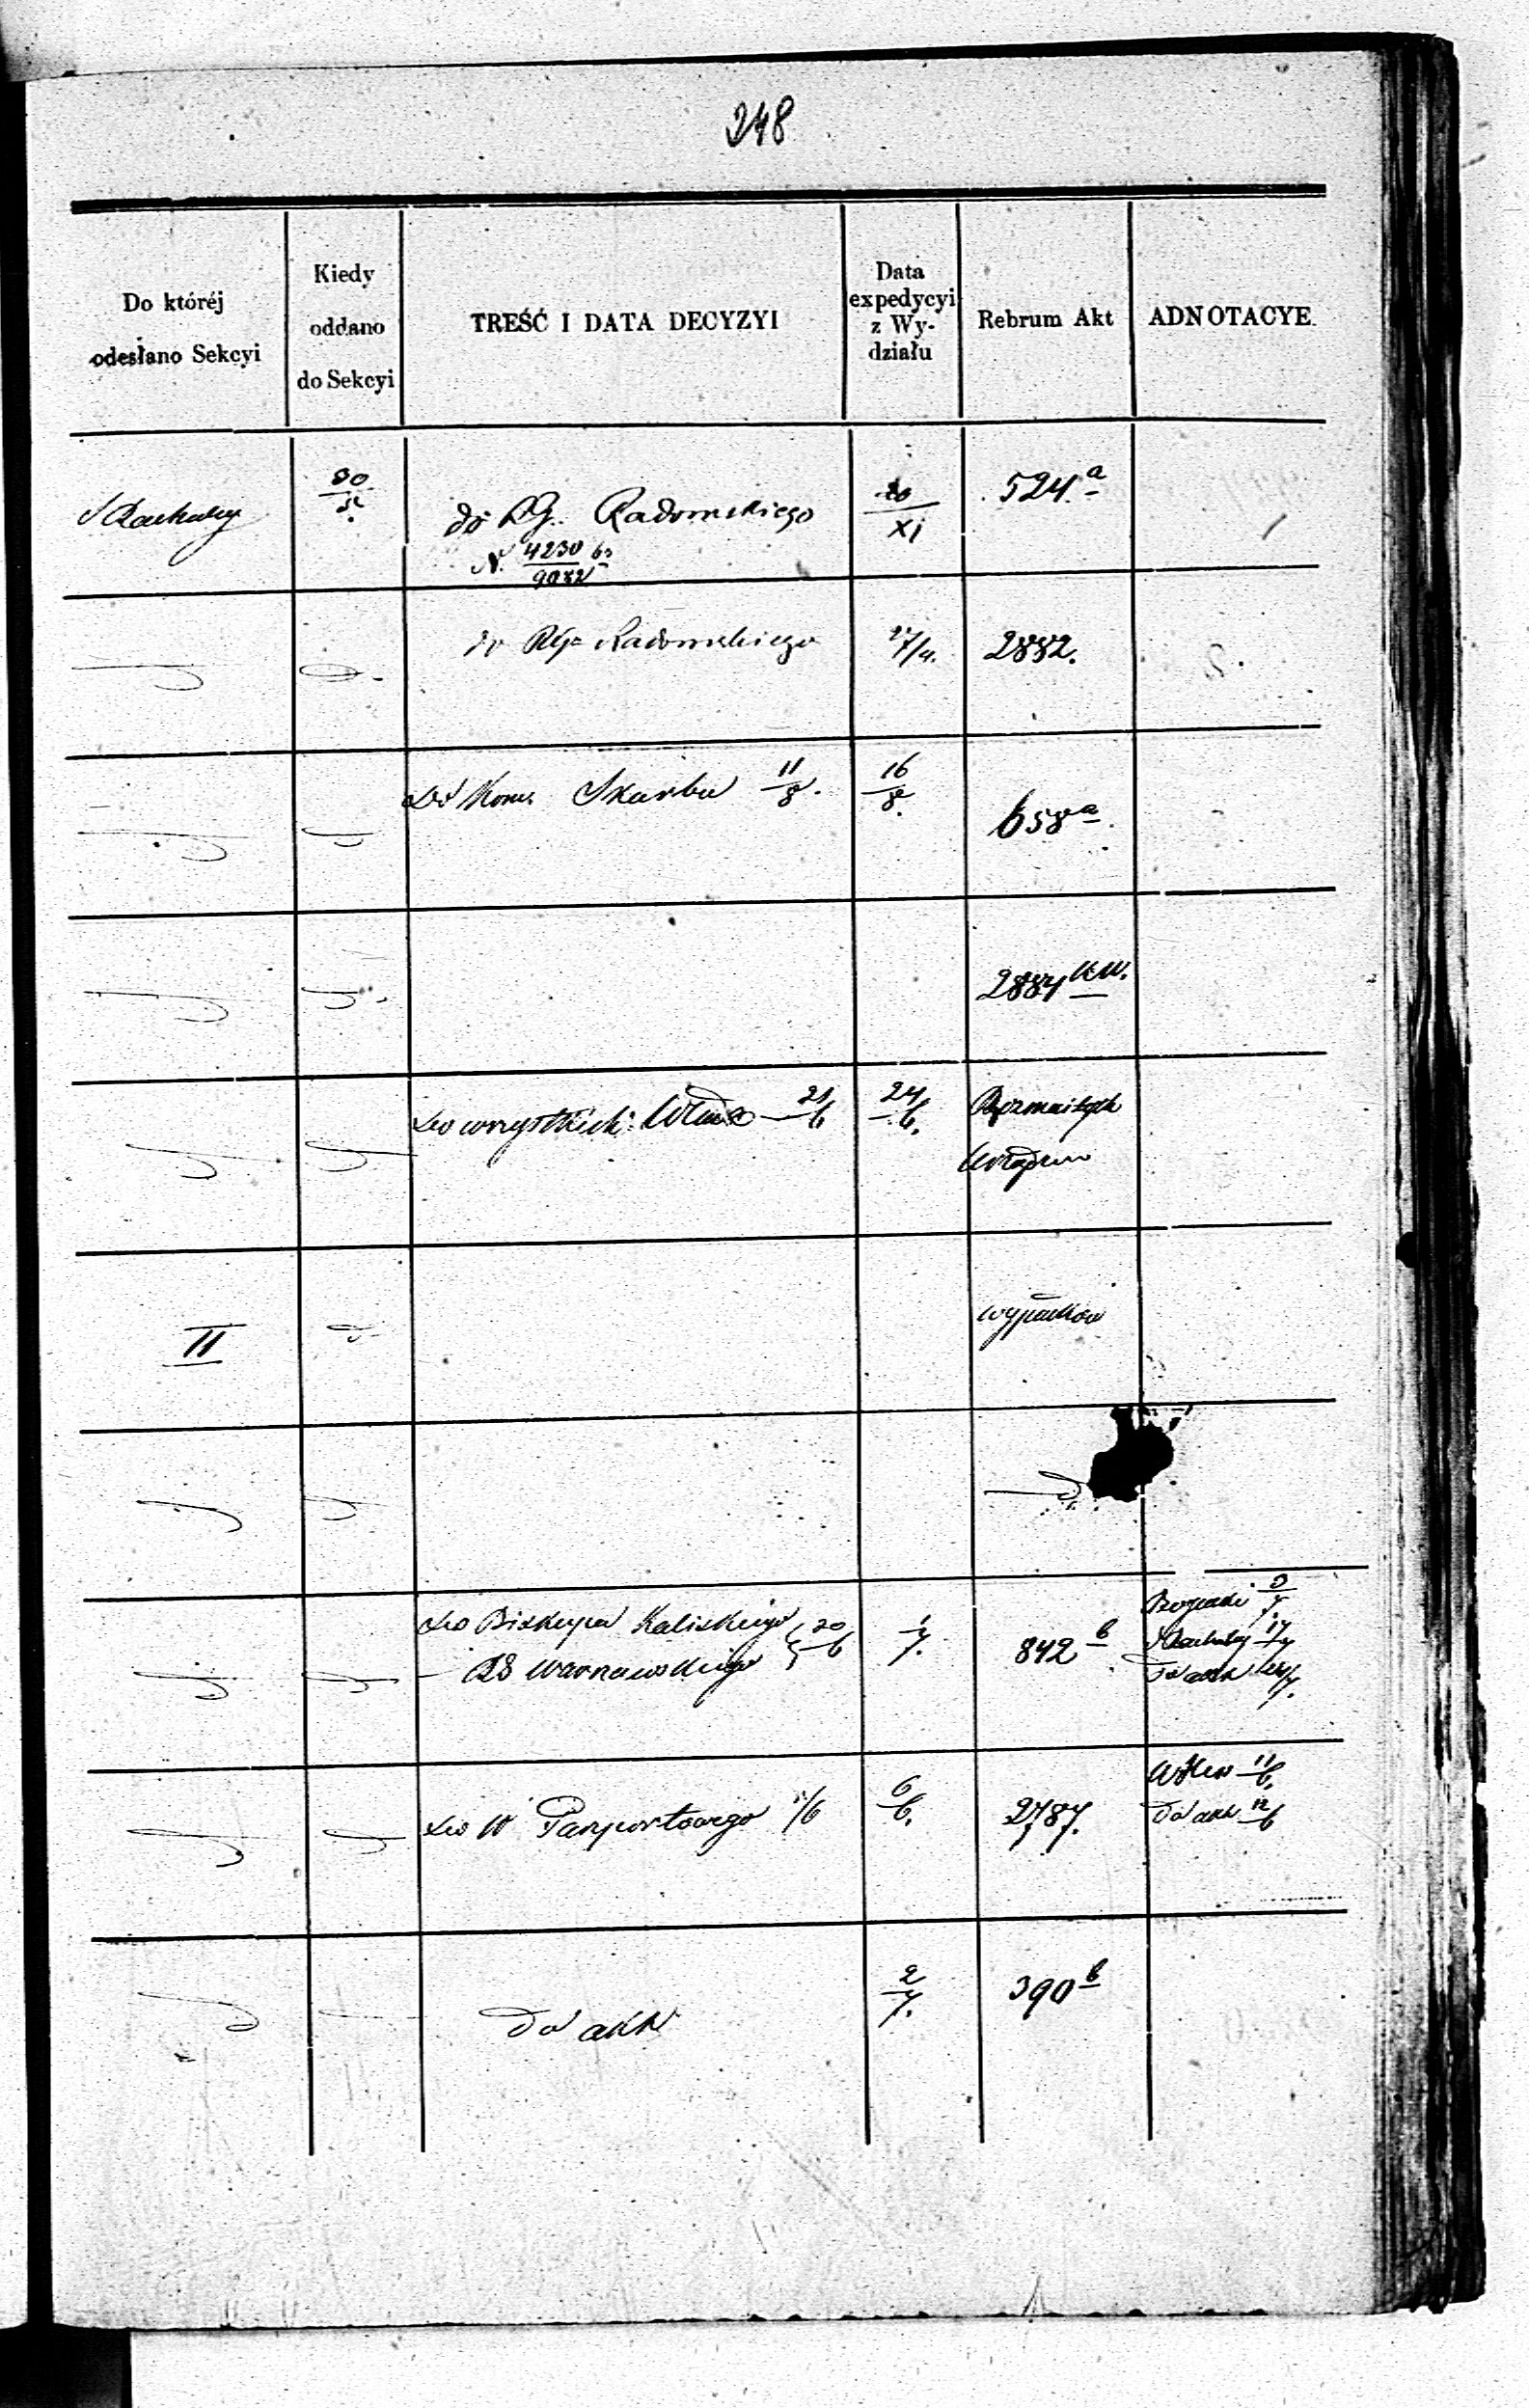 248
Do któréj
odesłano Sekcyi
Kiedy
oddano
do Sekcyi
TREŚĆ I DATA DECYZYI
Data
expedycyi
z Wy-
działu
Rebrum Akt
ADNOTACYE.
30/5.
do RG. Radomskiego
N. 4230/9082
20/XI
524.a
do RG. Radomskiego
2882.
Do Kom. Skarbu 11/8.
16/8.
658a.
2884
Do wszystkich Władz 21/6
24/6.
Rozmaitych
Urzędów
II
wypadków
Do Biskupa Kaliskiego
Warszawskiego
20/6
1/7.
842 b
3/7.
17/7
Do akt
Do W Pasportowego
6/6.
2787.
11/6.
Do akt 12/6
Do akt
2/7.
390b